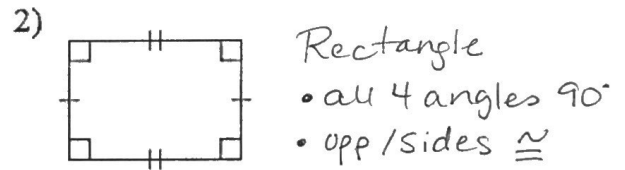 2)
Rectangle
• all 4 angles 90°
• opp/sides ≅